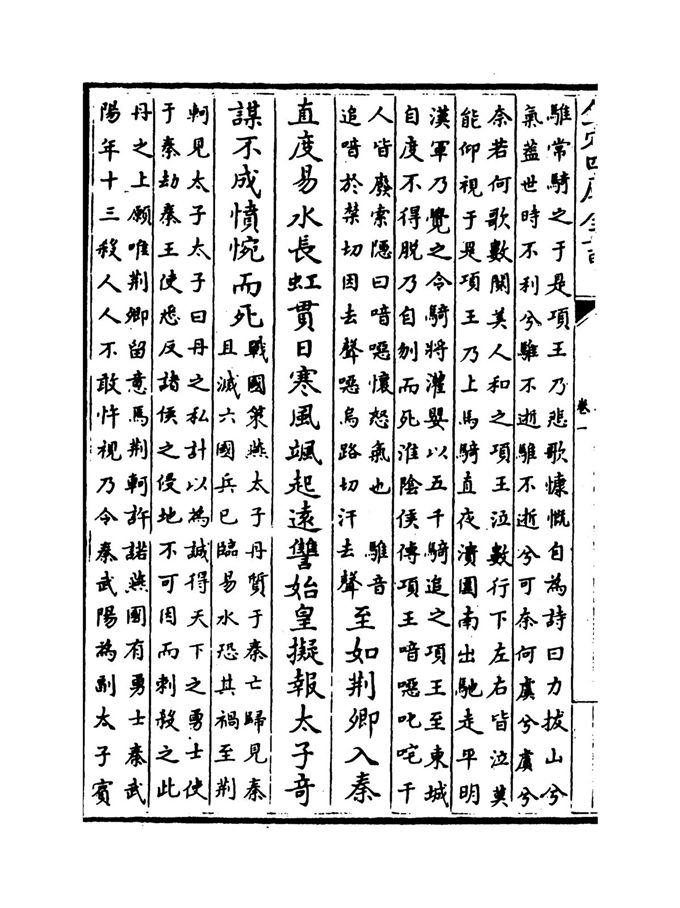 騅常騎之于是項王乃悲歌慷慨自為詩曰力拔山兮
氣蓋世時不利兮騅不逝騅不逝兮可奈何虞兮虞兮
奈若何歌數闋美人和之項王泣數行下左右皆泣莫
能仰視于是項王乃上馬騎直夜潰圍南出馳走平明
漢軍乃覺之令騎將灌嬰以五千騎追之項王至東城
自度不得脫乃自刎而死淮隂侯傳項王喑噁叱咤千
人皆廢索隠曰喑噁懷怒氣也 騅音
追喑於禁切因去聲噁烏路切汗去聲
至如荆卿入秦
直度易水長虹貫日寒風颯起逺讐始皇擬報太子奇
謀不成憤惋而死
戰國策燕太子丹質于秦亡歸見秦
且滅六國兵已臨易水恐其禍至荆
軻見太子太子曰丹之私計以為誠得天下之勇士使
于秦劫秦王使悉反諸侯之侵地不可因而刺殺之此
丹之上願唯荆卿留意焉荆軻許諾燕國有勇士秦武
陽年十三殺人人不敢忤視乃令秦武陽為副太子賓
卷一